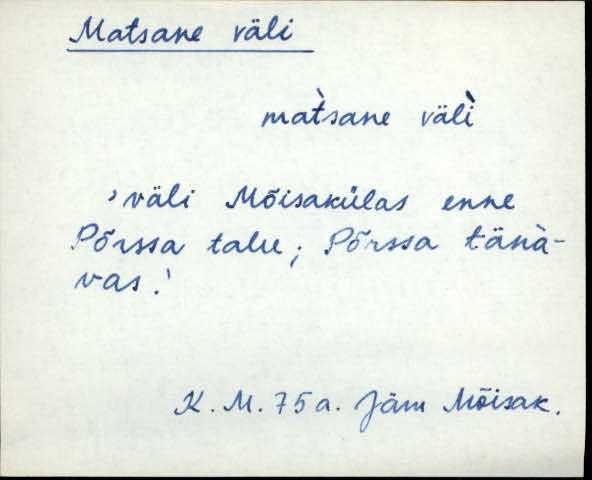 Matsane väli
mat̀sane väl̀i
'väli Mõisakülas enne
Põrssa talu; Põrssa tänà-
vas.'
K. M. 75a. Jäm Mõisak.